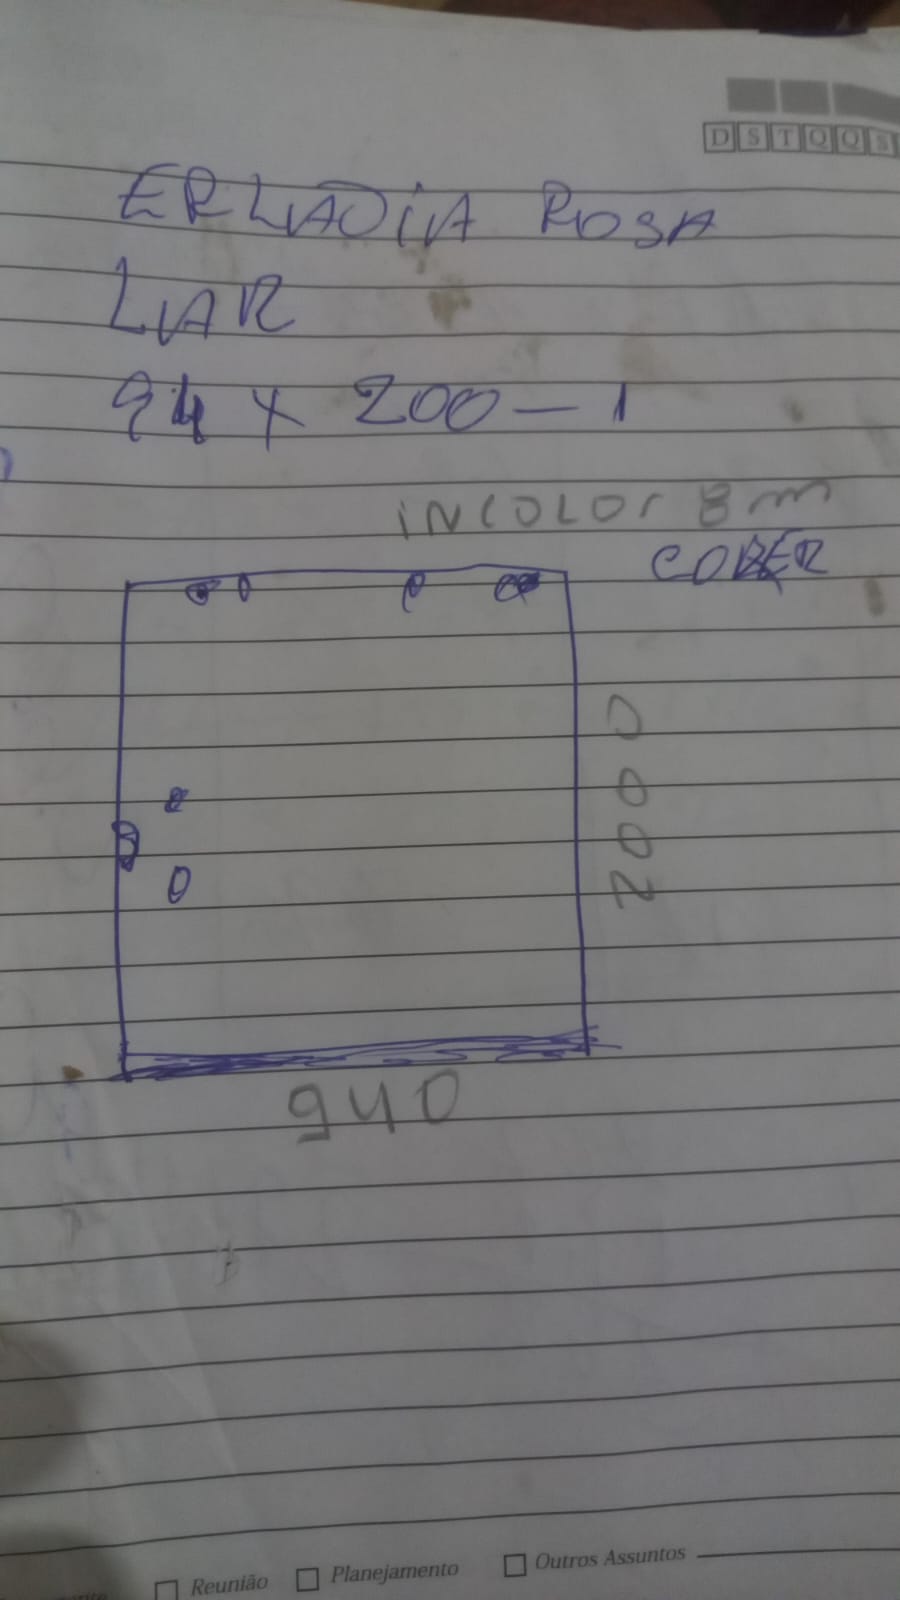 D S T Q Q S
ERLADIA ROSA
LAR
94 x 200 - 1
INCOLOr 8 m
2000
940
Reunião Planejamento Outros Assuntos